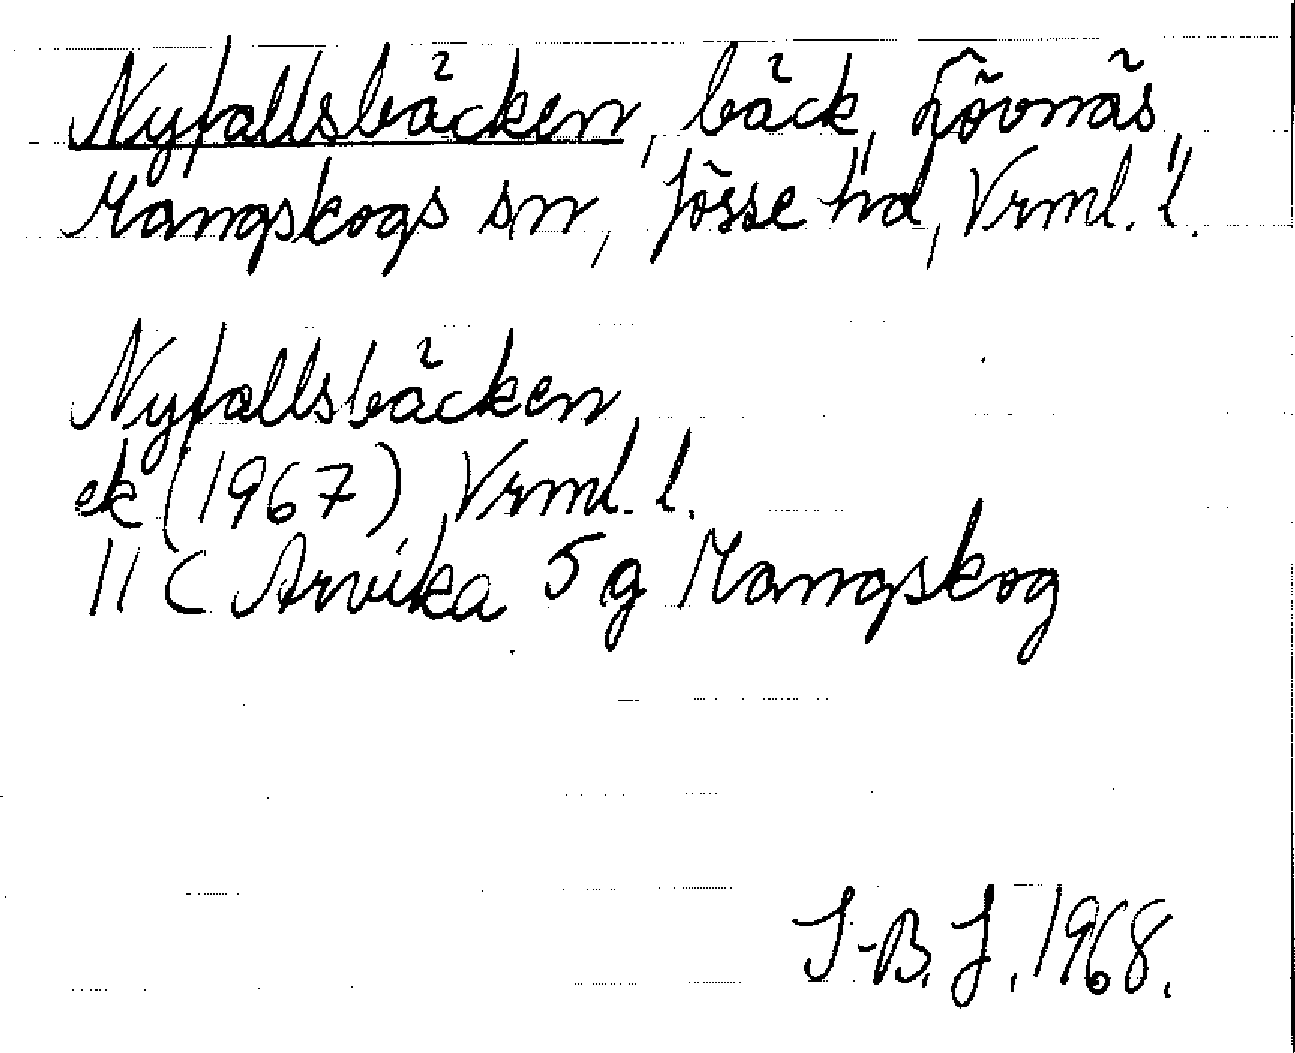 Nyfallsbäcken, bäck, Lövnäs,
Mangskogs sn, Jösse hd, Vrml. l.
Nyfallsbäcken
ek (1967) Vrml. l.
11 C Arvika 5 g Mangskog
I-B. J. 1968.